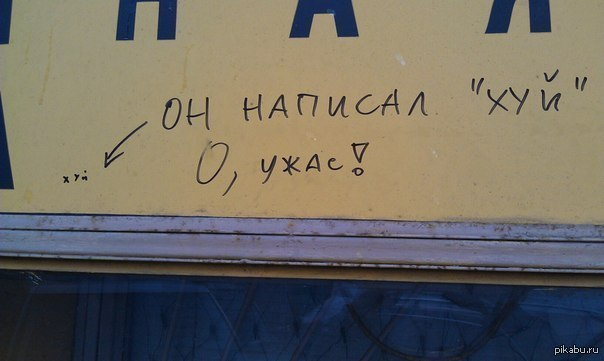 НАЯ
ОН НАПИСАЛ "ХУЙ"
О, УЖАС!
хуй
pikabu.ru